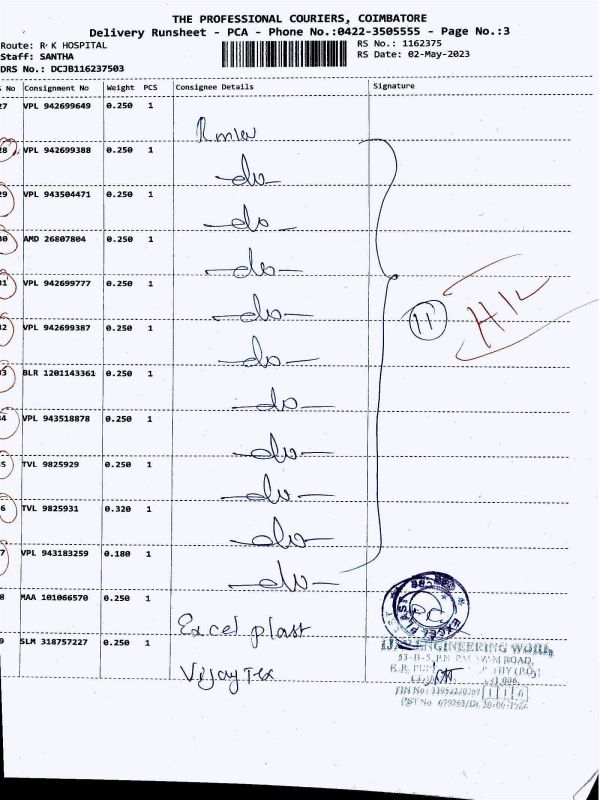 THE PROFESSIONAL COURIERS, COIMBATORE
Delivery Runsheet - PCA - Phone No.:0422-3505555 - Page No.:3
Route: R K HOSPITAL RS No.: 1162375
Staff: SANTHA RS Date: 02-May-2023
DRS No.: DCJB116237503
No Consignment No Weight PCS Consignee Details Signature
27 VPL 942699649 0.250 1
28 VPL 942699388 0.250 1
-do-
29 VPL 943504471 0.250 1
-do-
30 AMD 26807804 0.250 1
-do-
31 VPL 942699777 0.250 1
-do-
11 H12
32 VPL 942699387 0.250 1
-do-
3 BLR 1201143361 0.250 1
-do-
4 VPL 943518878 0.250 1
-do-
5 TVL 9825929 0.250 1
-do-
6 TVL 9825931 0.320 1
-do-
7 VPL 943183259 0.180 1
-do-
8 MAA 101066570 0.250 1
Excel plast
EXCEL PLAST
9 SLM 318757227 0.250 1
Vijay Tex
ENGINEERING WORK
53-B-5, ROAD,